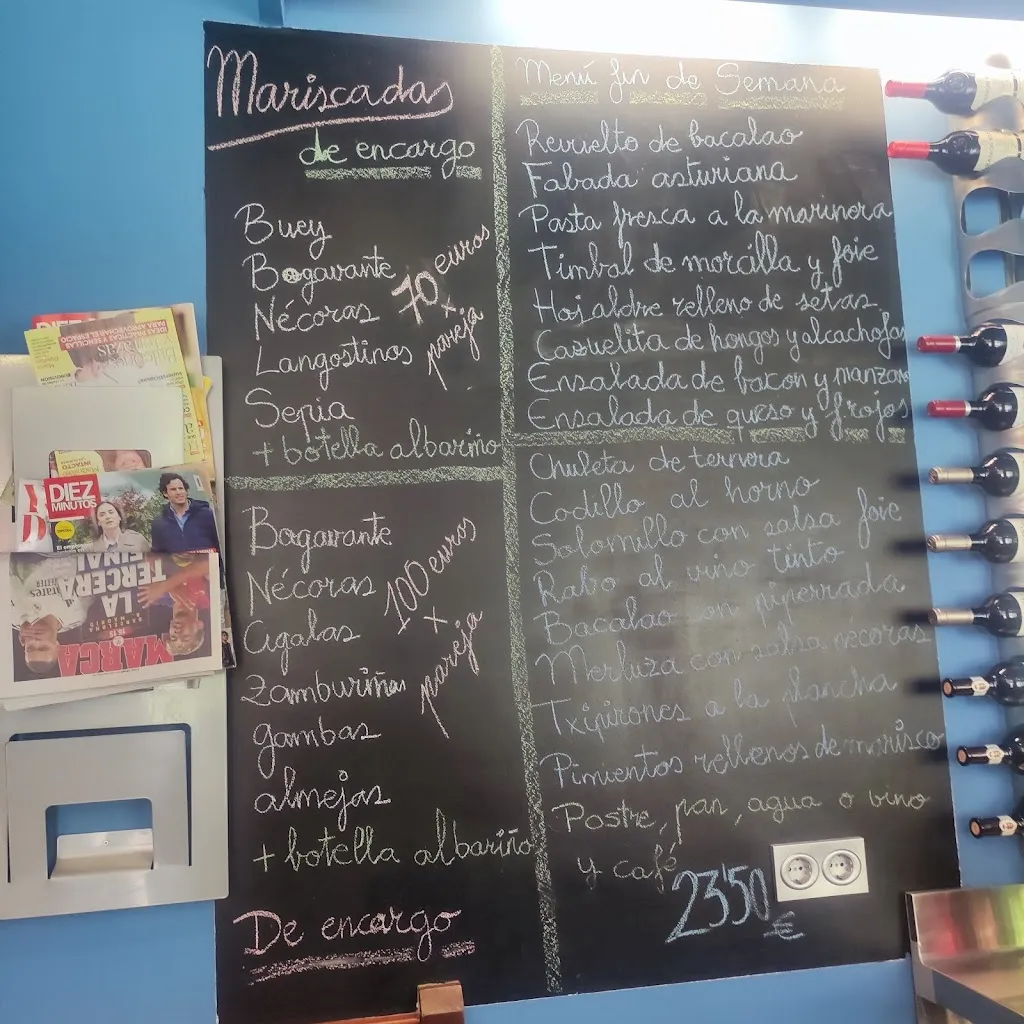 Mariscadas
de encargo
Buey
Bogavante
Nécoras
Langostinos
Sepia
+ botella albariño
70 euros
x
pareja
Bogavante
Nécoras
Cigalas
Zamburiñas
gambas
almejas
+ botella albariño
100 euros
x
pareja
De encargo
Menú fin de Semana
Revuelto de bacalao
Fabada asturiana
Pasta fresca a la marinera
Timbal de morcilla y foie
Hojaldre relleno de setas
Cazuelita de hongos y alcachofas
Ensalada de bacon y manzana
Ensalada de queso y frojos
Chuleta de ternera
Codillo al horno
Solomillo con salsa foie
Rabo al vino tinto
Bacalao con piperrada
Merluza con salsa nécoras
Txipirones a la plancha
Pimientos rellenos de marisco
Postre, pan, agua o vino
y café
23'50
€
DIEZ
MINUTOS
LA
TERCERA
FINAL
MARCA